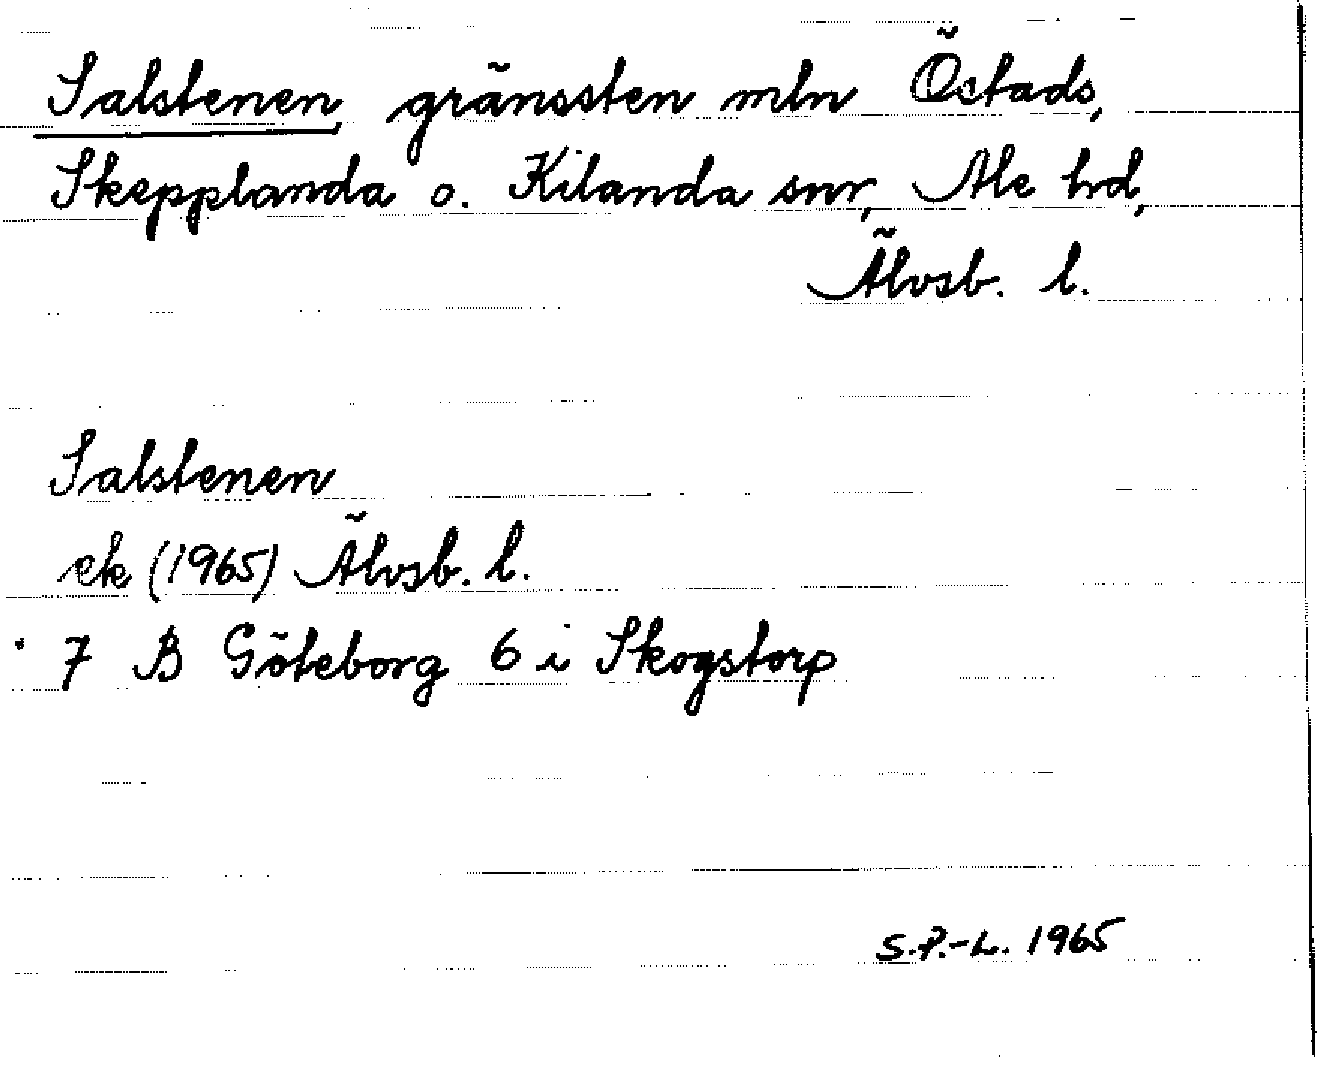 Salstenen, gränssten mln Östads,
Skepplanda o. Kilanda snr, Ale hd,
Älvsb. l.
Salstenen
ek (1965) Älvsb. l.
7 B Göteborg 6 i Skogstorp
S.P.-L. 1965